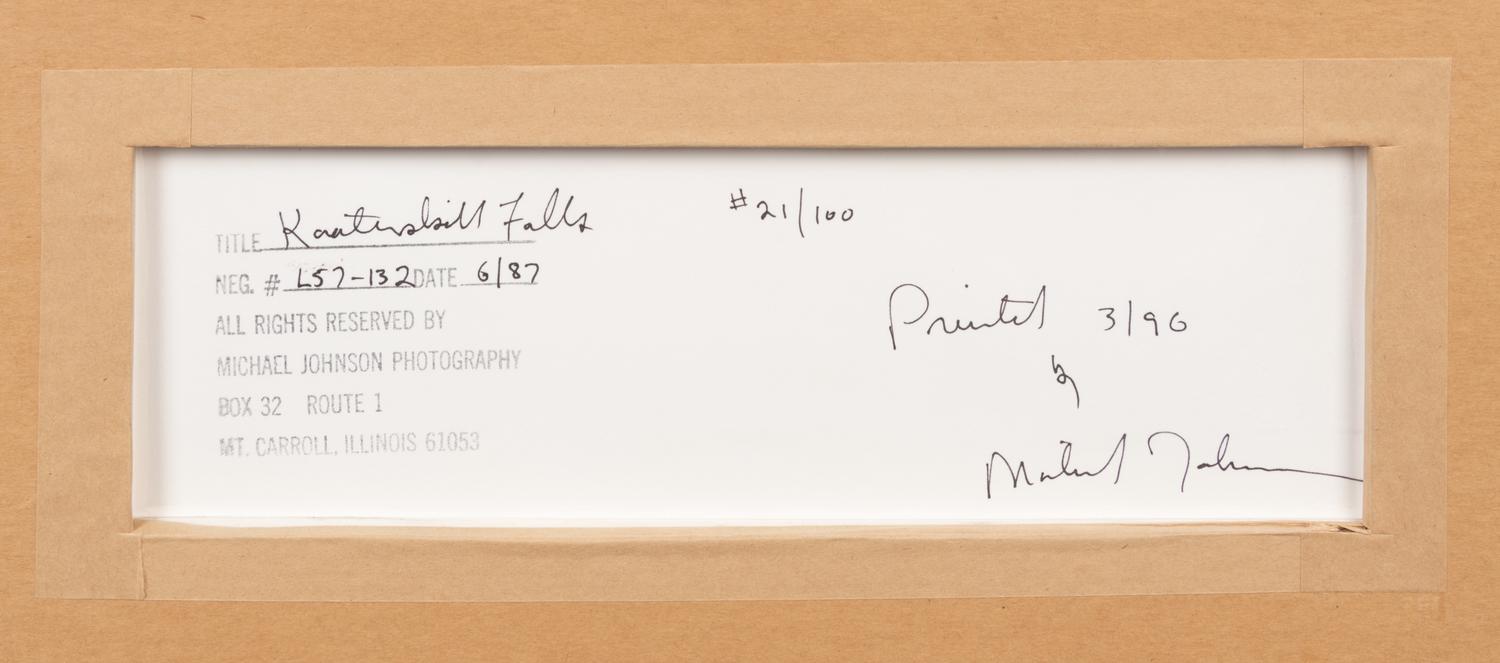 TITLE Kaaterskill Falls
NEG. # L57-132 DATE 6/87
ALL RIGHTS RESERVED BY
MICHAEL JOHNSON PHOTOGRAPHY
BOX 32 ROUTE 1
MT. CARROLL, ILLINOIS 61053
#21/100
Printed 3/90
by
Michael Johnson